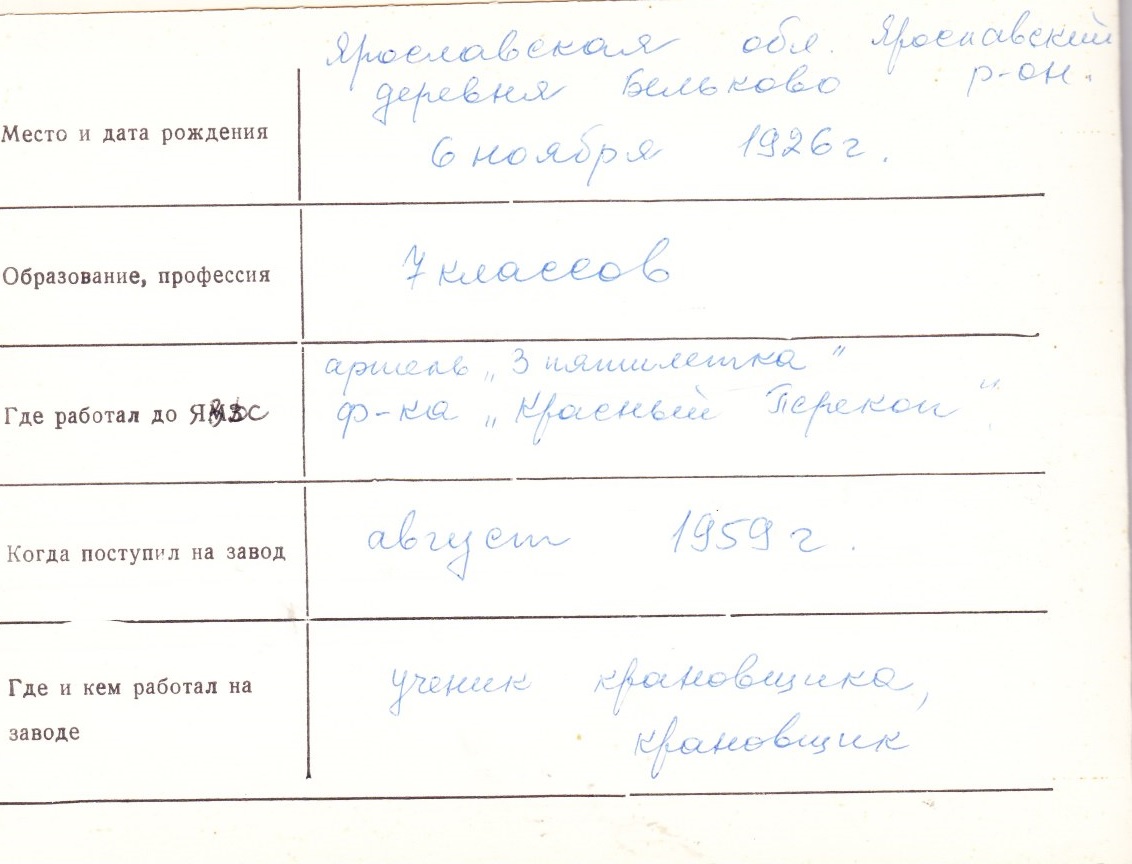 Ярославская обл. Ярославский
деревня Бельково р-он.
Место и дата рождения
6 ноября 1926 г.
Образование, профессия
7 классов
артель „3 пятилетка“
Где работал до
ф-ка „Красный Перекоп“
Когда поступил на завод
август 1959 г.
Где и кем работал на
заводе
ученик крановщика,
крановщик